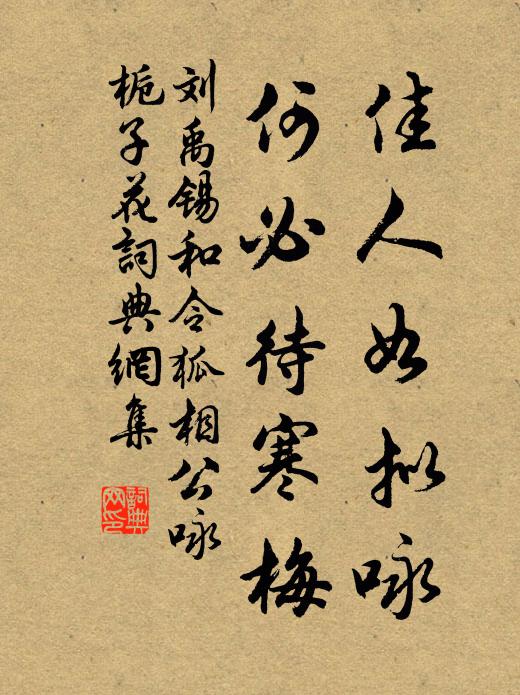 佳人如拟咏
何必待寒梅
刘禹锡和令狐相公咏
栀子花詞典網集
詞典
网印